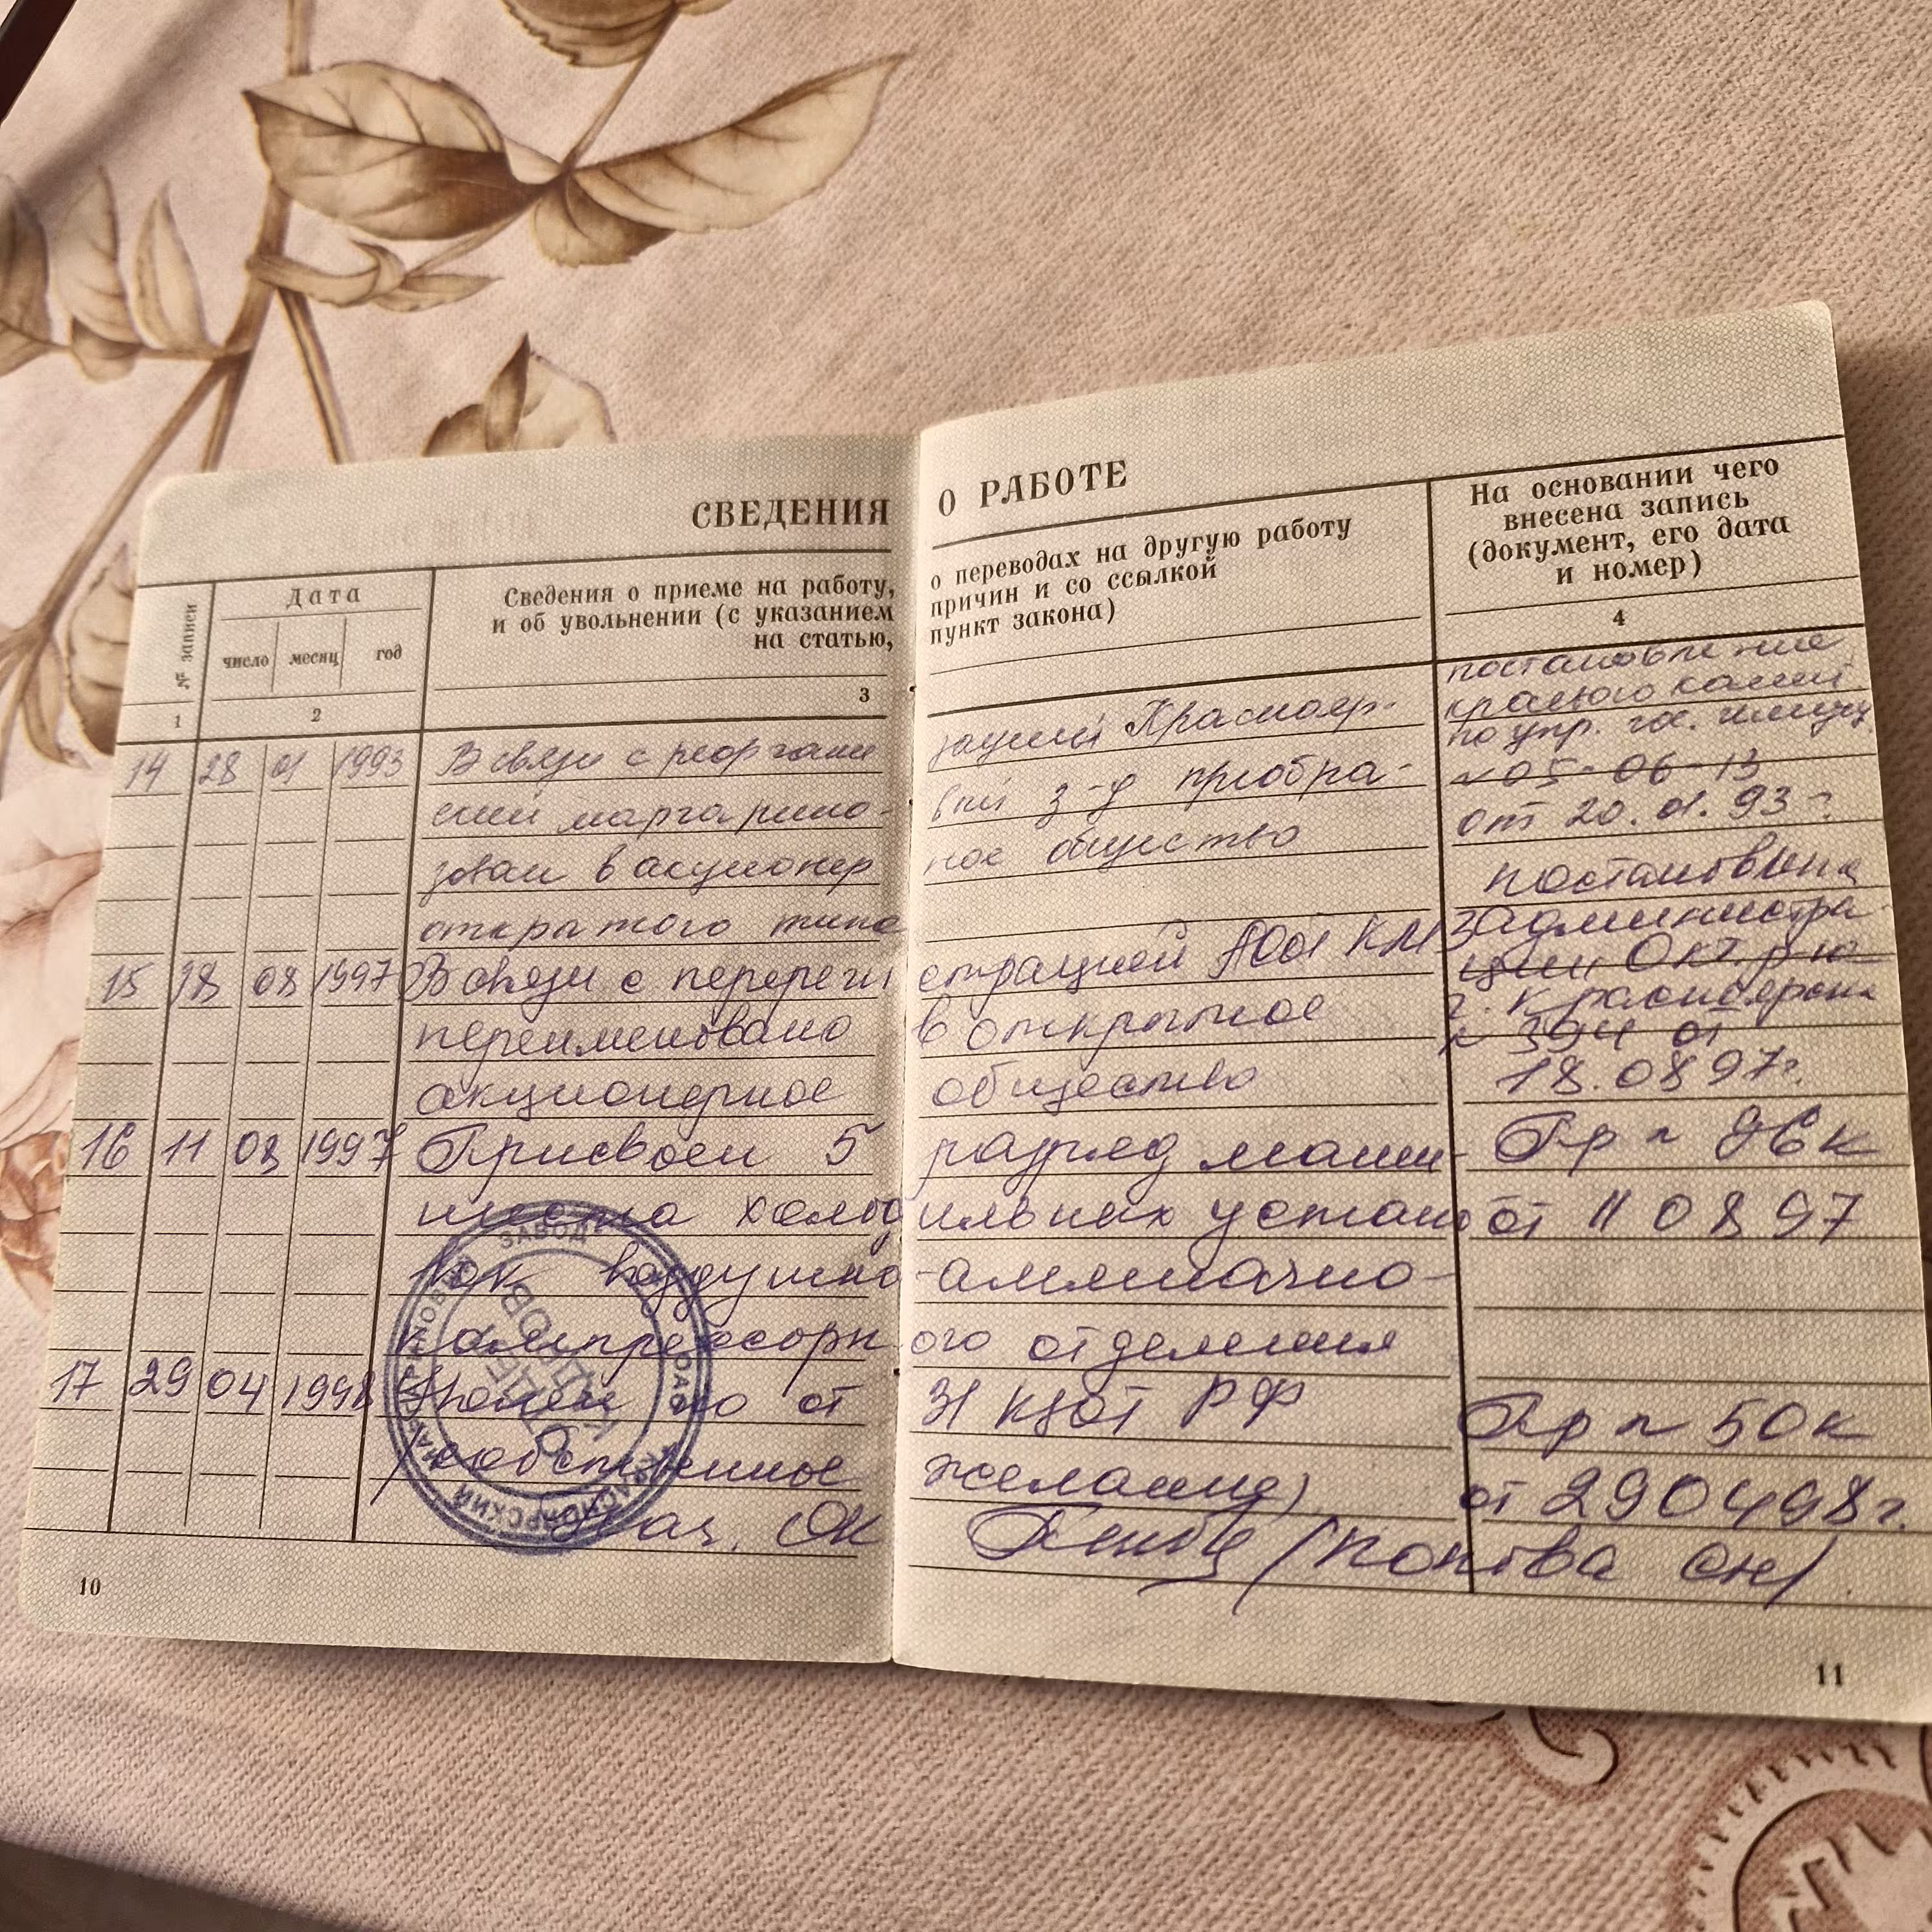 СВЕДЕНИЯ О РАБОТЕ
№ записи
Дата
число месяц год
Сведения о приеме на работу, о переводах на другую работу
и об увольнении (с указанием причин и со ссылкой
на статью, пункт закона)
На основании чего
внесена запись
(документ, его дата
и номер)
1 2 3 4
14 28 01 1993 В связи с реоргани зацией Краснояр-
ский маргарино- вый з-д преобра-
зован в акционер ное общество
открытого типа
постановление
краевого
по упр. гос.
№ 05-06-13
от 20.01.93 г.
15 18 08 1997 В связи с перереги страцией АОоt КМЗ
переименовано в открытое
акционерное общество
администра-
ции Окт. р-на
г. Красноярска
№ 394 от
18.08 97г.
16 11 08 1997 Присвоен 5 разряд маши-
ниста холод ильных устано
вок воздушно -аммиачно-
компрессорн ого отделения
Пр № 96к
от 11 08 97
17 29 04 1998 Уволен по ст 31 КЗоТ РФ
(собственное желание)
Нач. ОК
Пр № 50к
от 29 04 98г.
ЗАВОД
ОАО
КРАСНОЯРСКИЙ
10
11